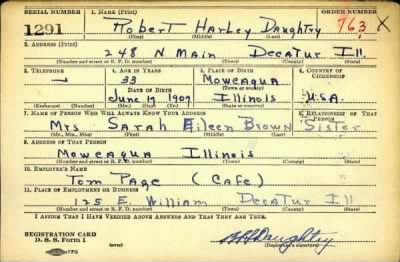 SERIAL NUMBER 1. NAME (Print) ORDER NUMBER
1291 Robert Harley Daughtry 763 X
(First) (Middle) (Last)
2. ADDRESS (Print)
248 N Main Decatur Ill.
(Number and street or R. F. D. number) (Town) (County) (State)
3. TELEPHONE 4. AGE IN YEARS 5. PLACE OF BIRTH 6. COUNTRY OF CITIZENSHIP
33 Moweaqua
DATE OF BIRTH (Town or county)
June 19 1907 Illinois U.S.A.
(Exchange) (Number) (Mo.) (Day) (Yr.) (State or country)
7. NAME OF PERSON WHO WILL ALWAYS KNOW YOUR ADDRESS 8. RELATIONSHIP OF THAT PERSON
Mrs Sarah Eileen Brown Sister
(Mr., Mrs., Miss) (First) (Middle) (Last)
9. ADDRESS OF THAT PERSON
Moweaqua Illinois
(Number and street or R. F. D. number) (Town) (County) (State)
10. EMPLOYER'S NAME
Tom Page (Cafe)
11. PLACE OF EMPLOYMENT OR BUSINESS
125 E. William Decatur Ill
(Number and street or R. F. D. number) (Town) (County) (State)
I AFFIRM THAT I HAVE VERIFIED ABOVE ANSWERS AND THAT THEY ARE TRUE.
REGISTRATION CARD
D. S. S. Form 1 R H Daughtry
(Registrant's signature)